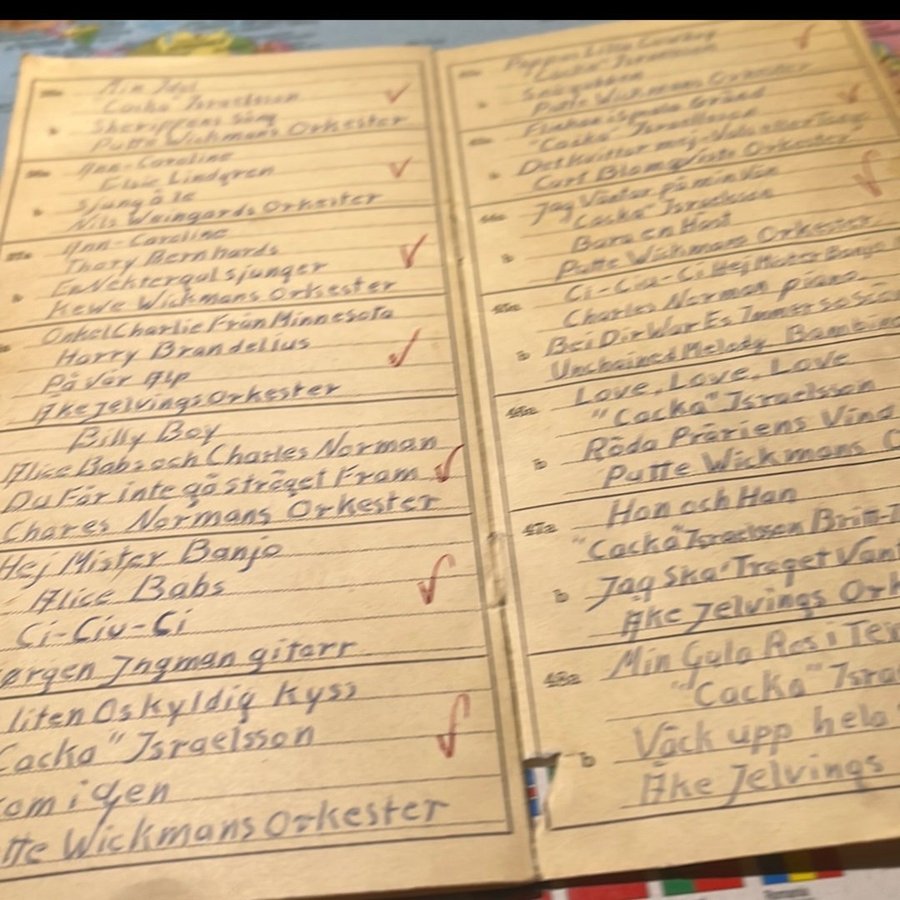 Min Idol
"Cacka" Israelsson
b Sherippens Sång
Putte Wickmans Orkester
Ann-Caroline
Elsie Lindgren
b Sjung å le
Nils Weingards Orkester
Ann-Caroline
Thory Bernhards
b En Nektergal sjunger
Kewe Wickmans Orkester
Onkel Charlie Från Minnesota
Harry Brandelius
På Vår Alp
Åke Jelvings Orkester
Billy Boy
Alice Babs och Charles Norman
Du Får inte gå stråget Fram
Chares Normans Orkester
Hej Mister Banjo
Alice Babs
Ci-Ciu-Ci
ørgen Ingman gitarr
liten Oskyldig kyss
Cacka" Israelsson
om igen
tte Wickmans Orkester
Pappas Lilla Cowboy
"Cacka" Israelsson
b
Putte Wickmans Orkester
Gränd
"Cacka" Israelsson
b Det kvittar mej
Curt Blomqvists Orkester"
44a Jag Väntar på min Vän
"Cacka" Israelsson
Bara en Häst
b Putte Wickmans Orkester
45a Ci-Ciu-Ci Hej Mister Banjo
Charles Norman piano
b Bei Dir War Es Immer so Schön
Unchained Melody. Bambino
46a Love, Love, Love
"Cacka" Israelsson
b Röda Präriens Vind
Putte Wickmans O
47a Hon och Han
"Cacka" Israelsson Britt-I
b Jag Ska' Traget Vänt
Åke Jelvings Ork
48a Min Gula Ros i Tex
"Cacka" Isra
b Väck upp hela
Åke Jelvings